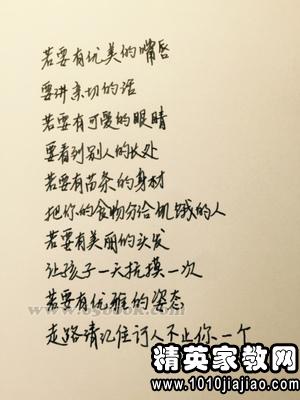 若要有优美的嘴唇
要讲亲切的话
若要有可爱的眼睛
要看到别人的长处
若要有苗条的身材
把你的食物分给饥饿的人
若要有美丽的头发
让孩子一天抚摸一次
若要有优雅的姿态
走路请记住行人不止你一个
精英家教网
www.1010jiajiao.com